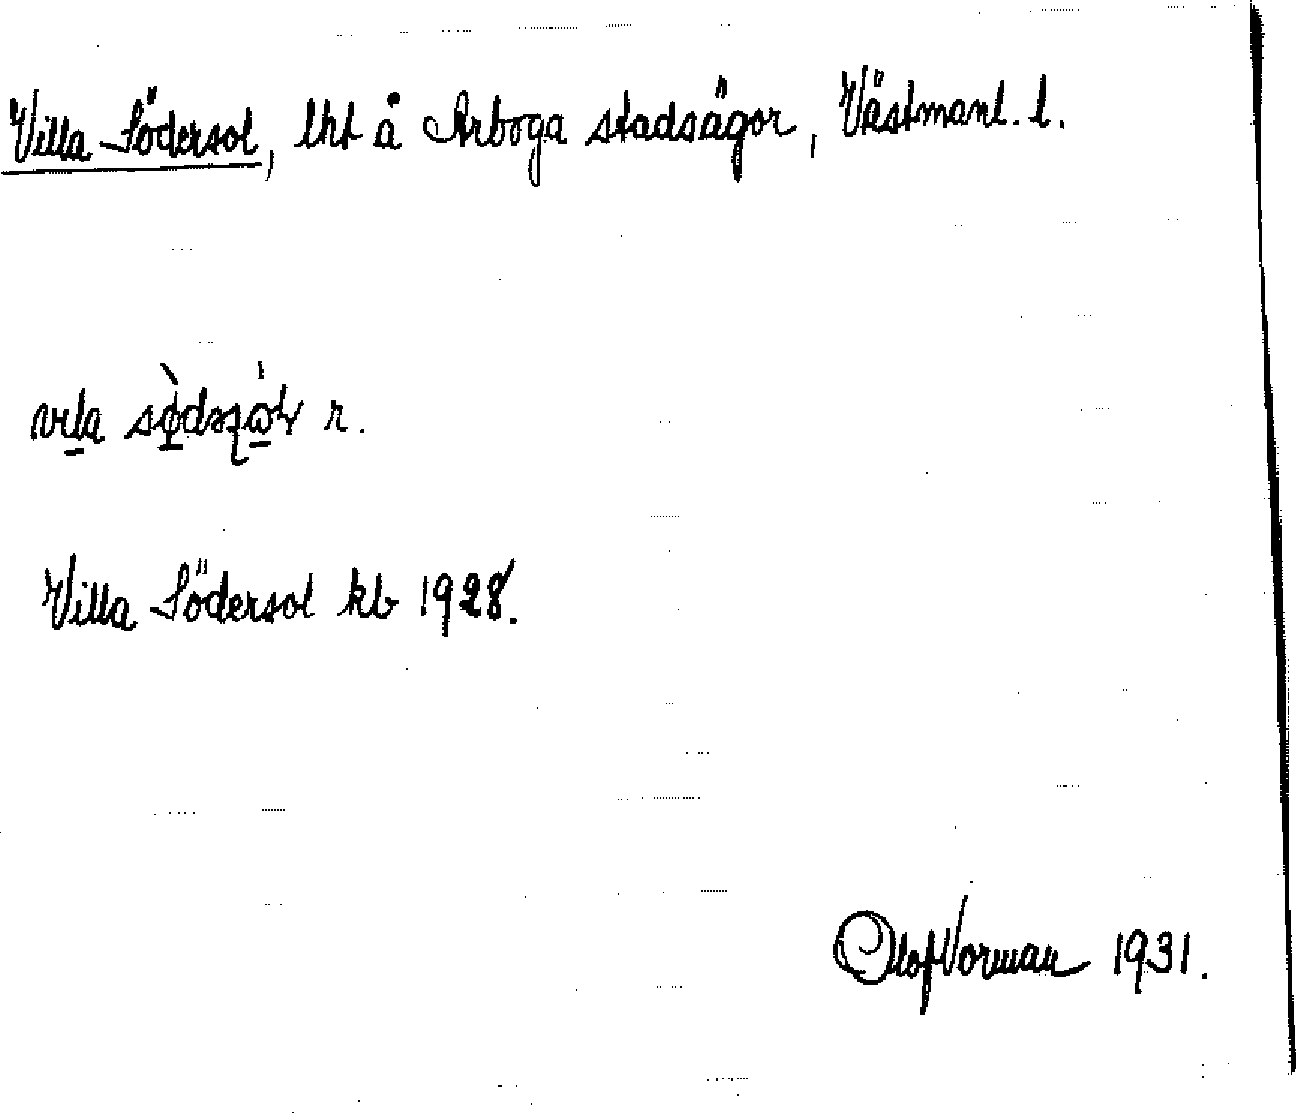 Villa Södersol, lht å Arboga stadsägor, Västmanl. l.
Villa Södersol kb 1928.
Olof Vorman 1931.